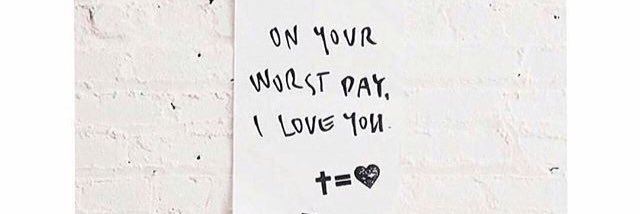 ON YOUR
WORST DAY,
I LOVE YOU.
✝=♥